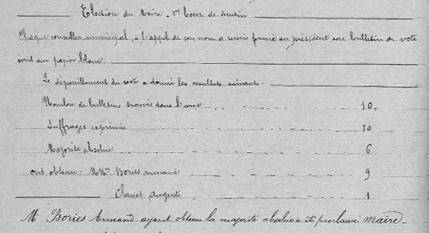 Election du Maire. 1er tour de scrutin
Chaque conseiller municipal, à l'appel de son nom a remis fermé au président son bulletin de vote
écrit sur papier blanc.
Le dépouillement du vote a donné les résultats suivants.
Nombre de bulletins trouvés dans l'urne 10.
Suffrages exprimés 10
Majorité absolue 6
ont obtenu: MM. Bories Armand 9
Clamet Auguste 1
M. Bories Armand ayant obtenu la majorité absolue a été proclamé maire.